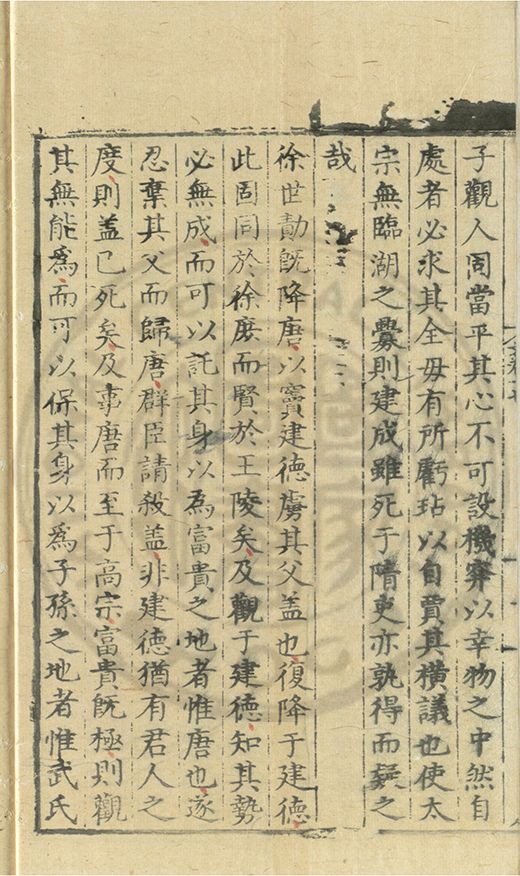 子觀人固當平其心不可設機穽以幸物之中然自
處者必求其全毋有所虧玷以自賈其橫議也使太
宗無臨湖之釁則建成雖死于隋吏亦孰得而疑之
哉
徐世勣旣降唐以竇建德虜其父盖也復降于建德
此固同於徐庶而賢於王陵矣及觀于建德知其勢
必無成而可以託其身以為富貴之地者惟唐也遂
忍棄其父而歸唐群臣請殺盖非建德猶有君人之
度則盖已死矣及事唐而至于高宗富貴旣極則觀
其無能爲而可以保其身以爲子孫之地者惟武氏